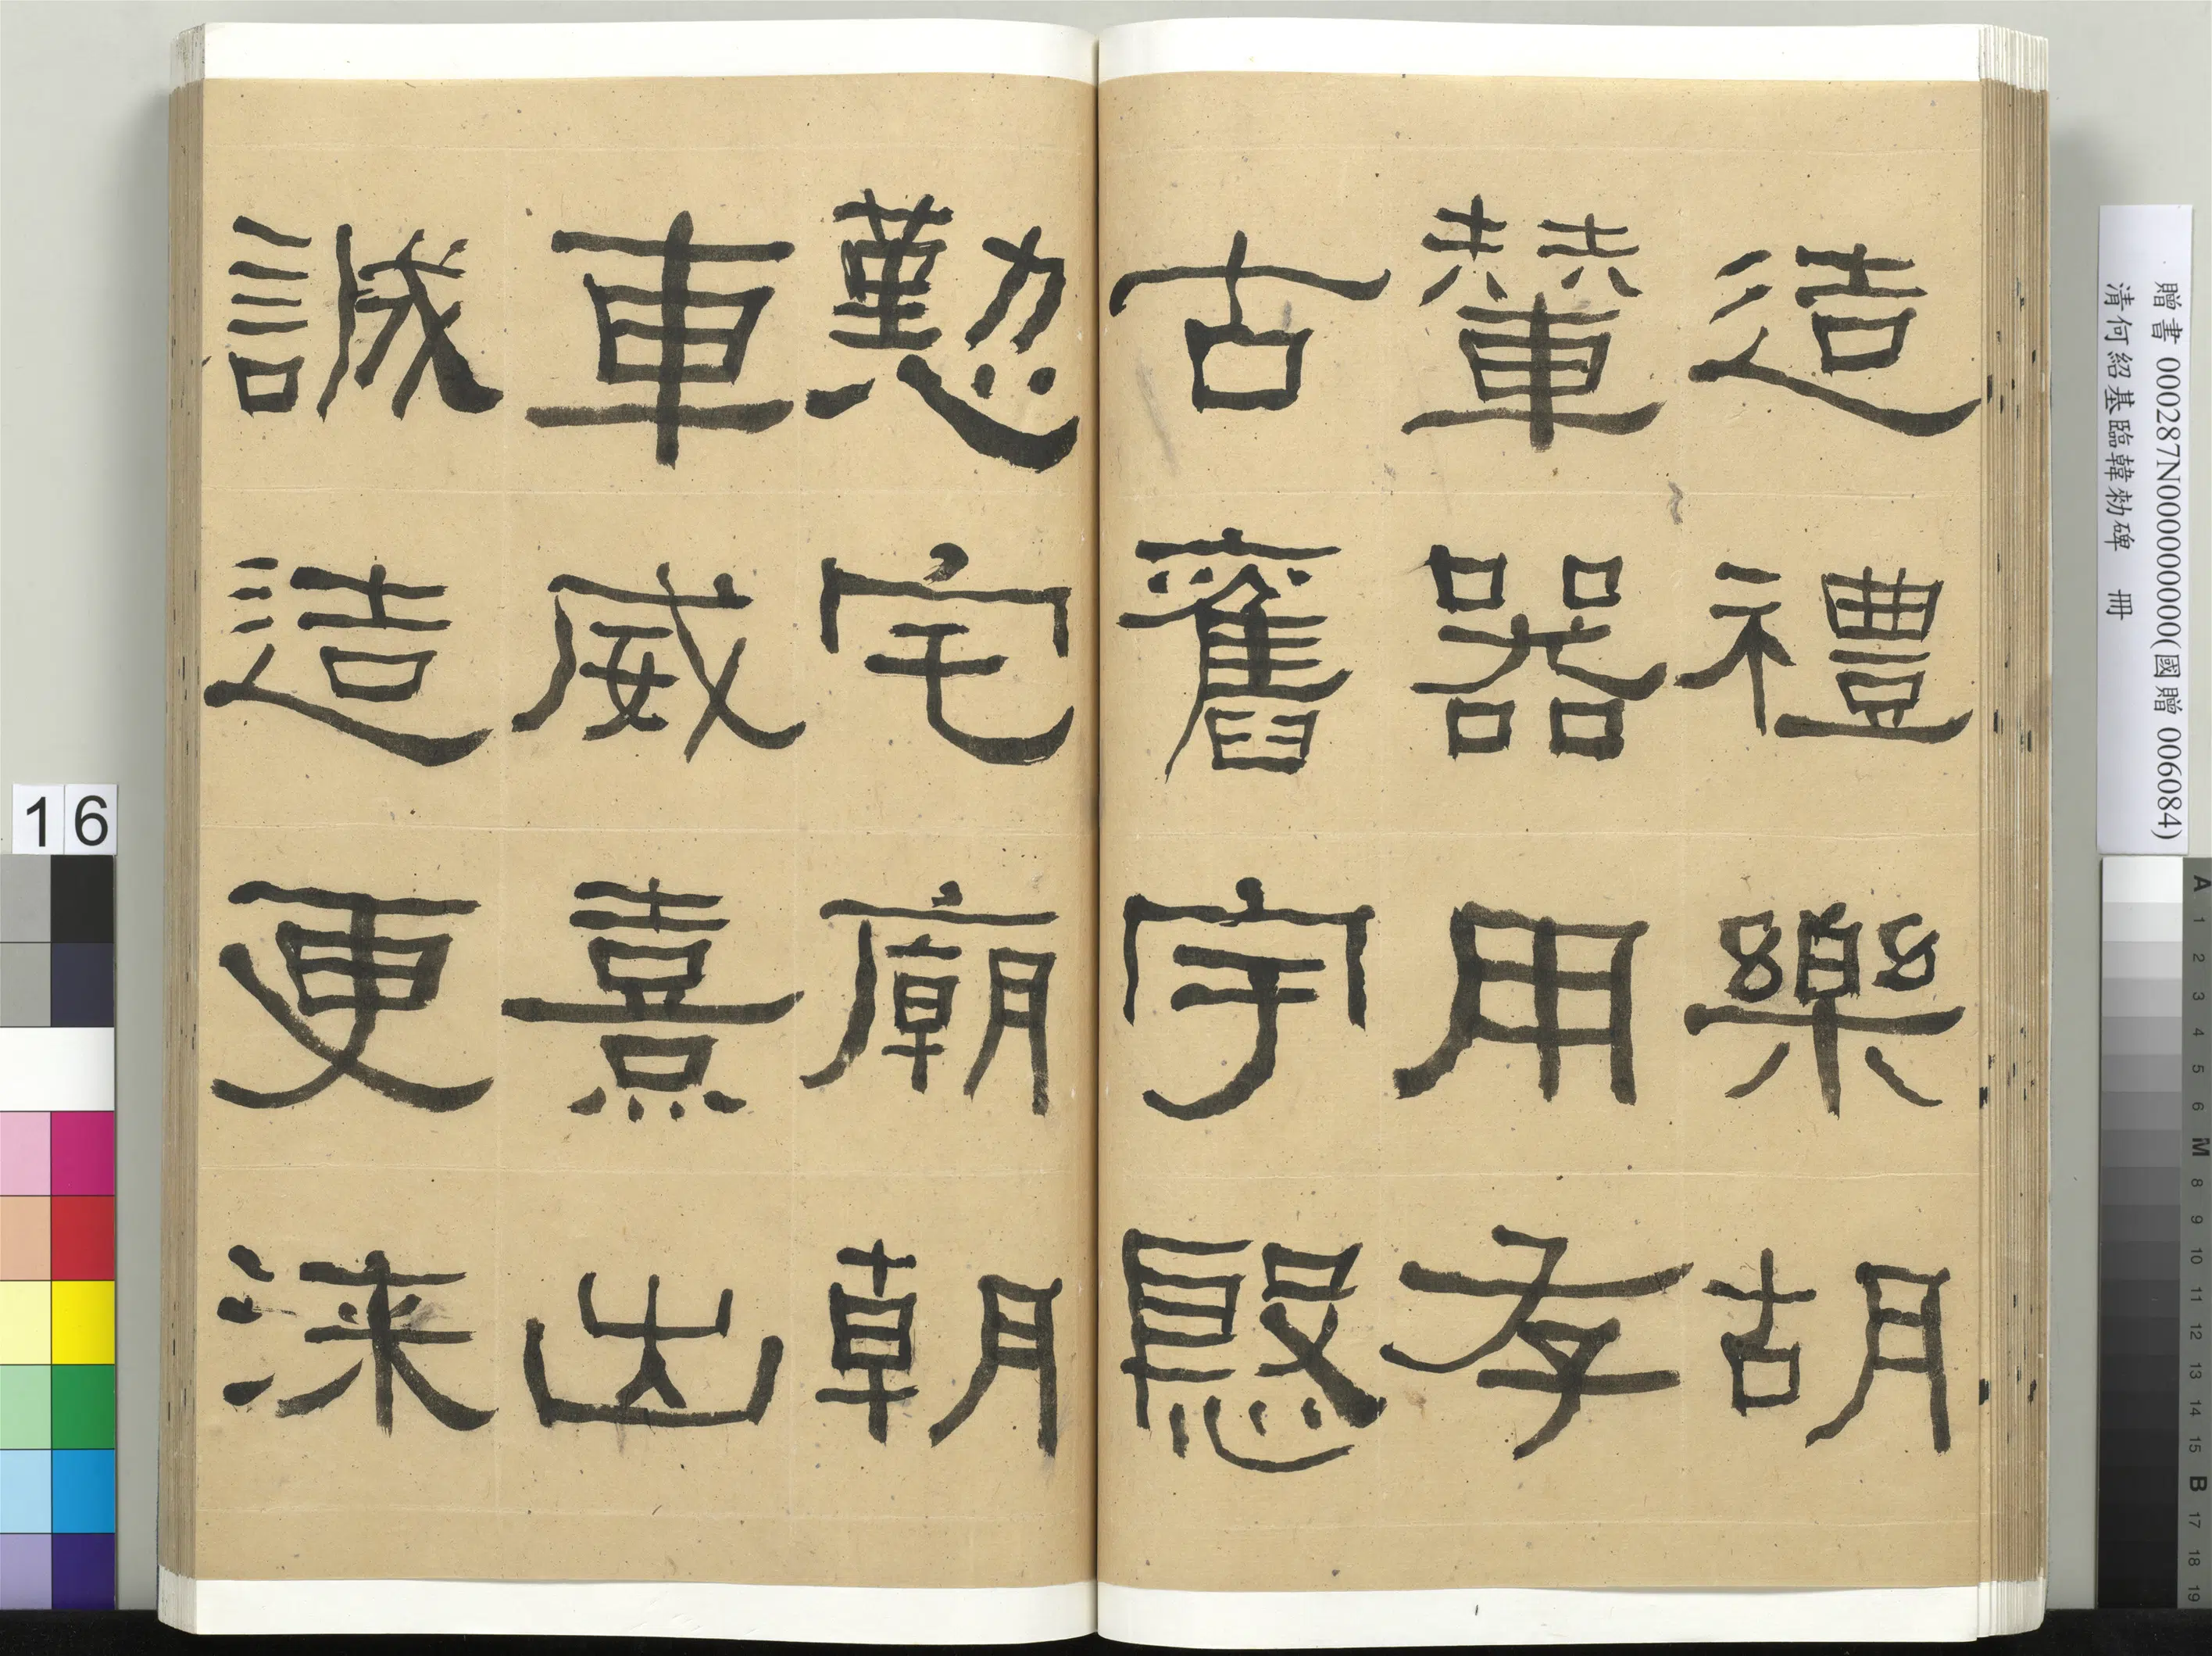 造禮樂胡
輦器用存
古舊宇慇
懃宅廟朝
車威熹出
誠造更漆
贈書 000287N000000000(國贈 006084)
清何紹基臨韓勑碑 冊
16
A 1 2 3 4 5 6 M 8 9 10 11 12 13 14 15 B 17 18 19